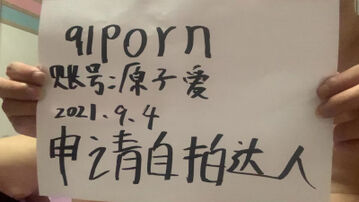 91porn
账号:原子爱
2021.9.4
申请自拍达人